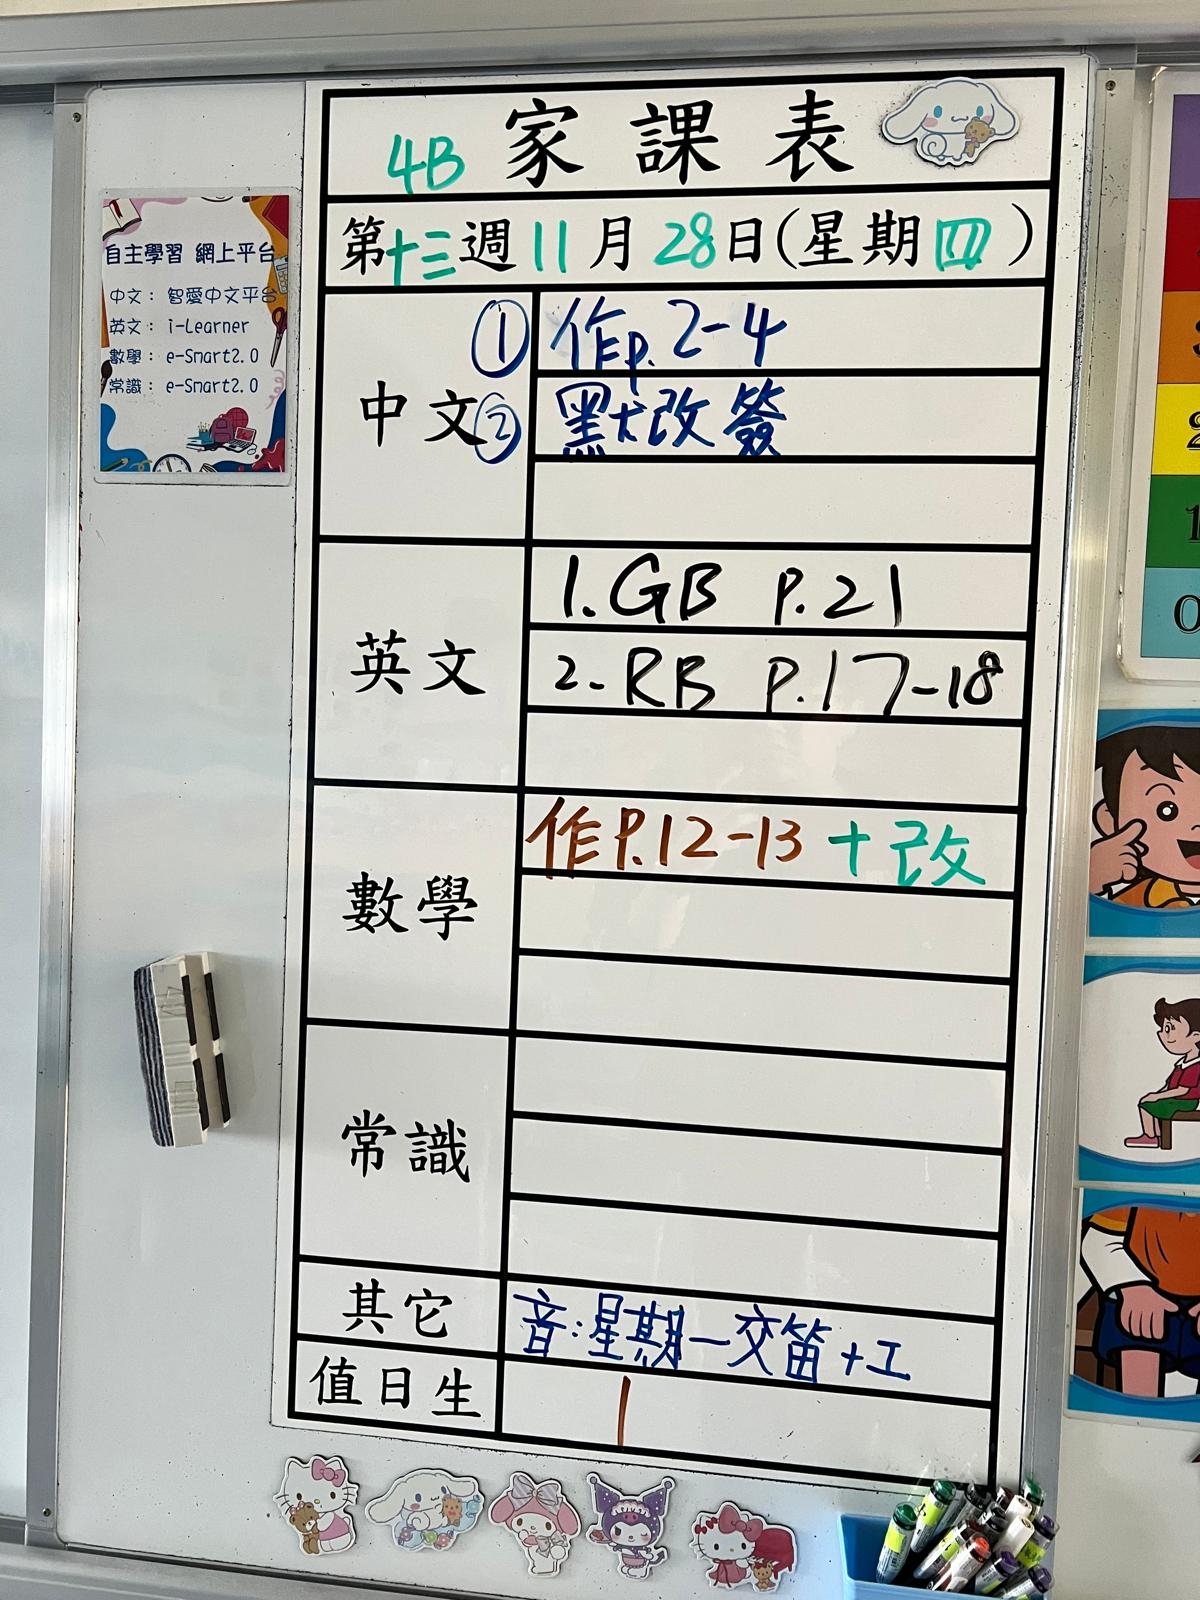 4B 家課表
第十三週11月28日(星期四)
自主學習 網上平台
中文： 智愛中文平台
英文： i-Learner
數學： e-Smart2.0
常識： e-Smart2.0
中文
① 作p.2-4
② 默改簽
英文
1.GB p.21
2.RB p.17-18
數學
作P.12-13 +改
常識
其它
音:星期一交笛+工
值日生
1
2
1
0